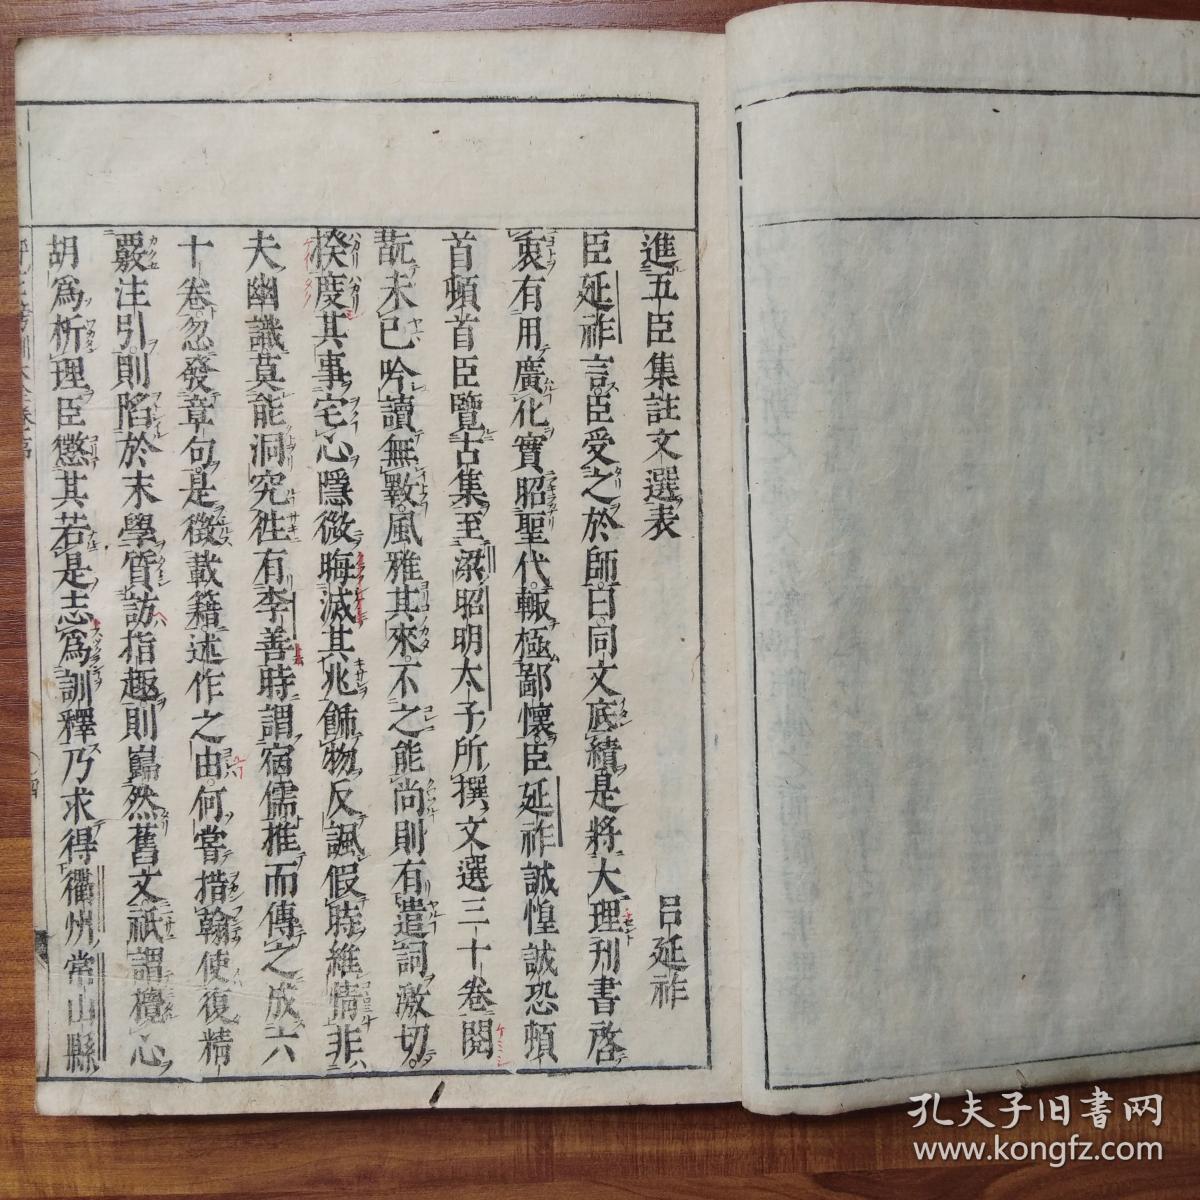 進五臣集註文選表
呂延祚
臣延祚言臣受之於師曰同文底績是將大理刊書啓
衷有用廣化實昭聖代輙極鄙懷臣延祚誠惶誠恐頓
首頓首臣覽古集至梁昭明太子所撰文選三十卷閱
翫未已吟讀無斁風雅其來不之能尚則有遣詞激切
揆度其事宅心隱微晦滅其兆飾物反諷假時維情非
夫幽識莫能洞究徃有李善時謂宿儒推而傳之成六
十卷忽發章句是徴載籍述作之由何嘗措翰使復精
覈注引則陷於末學質訪指趣則巋然舊文祇謂攪心
胡為析理臣懲其若是志為訓釋乃求得衢州常山縣
孔夫子旧書网
www.kongfz.com